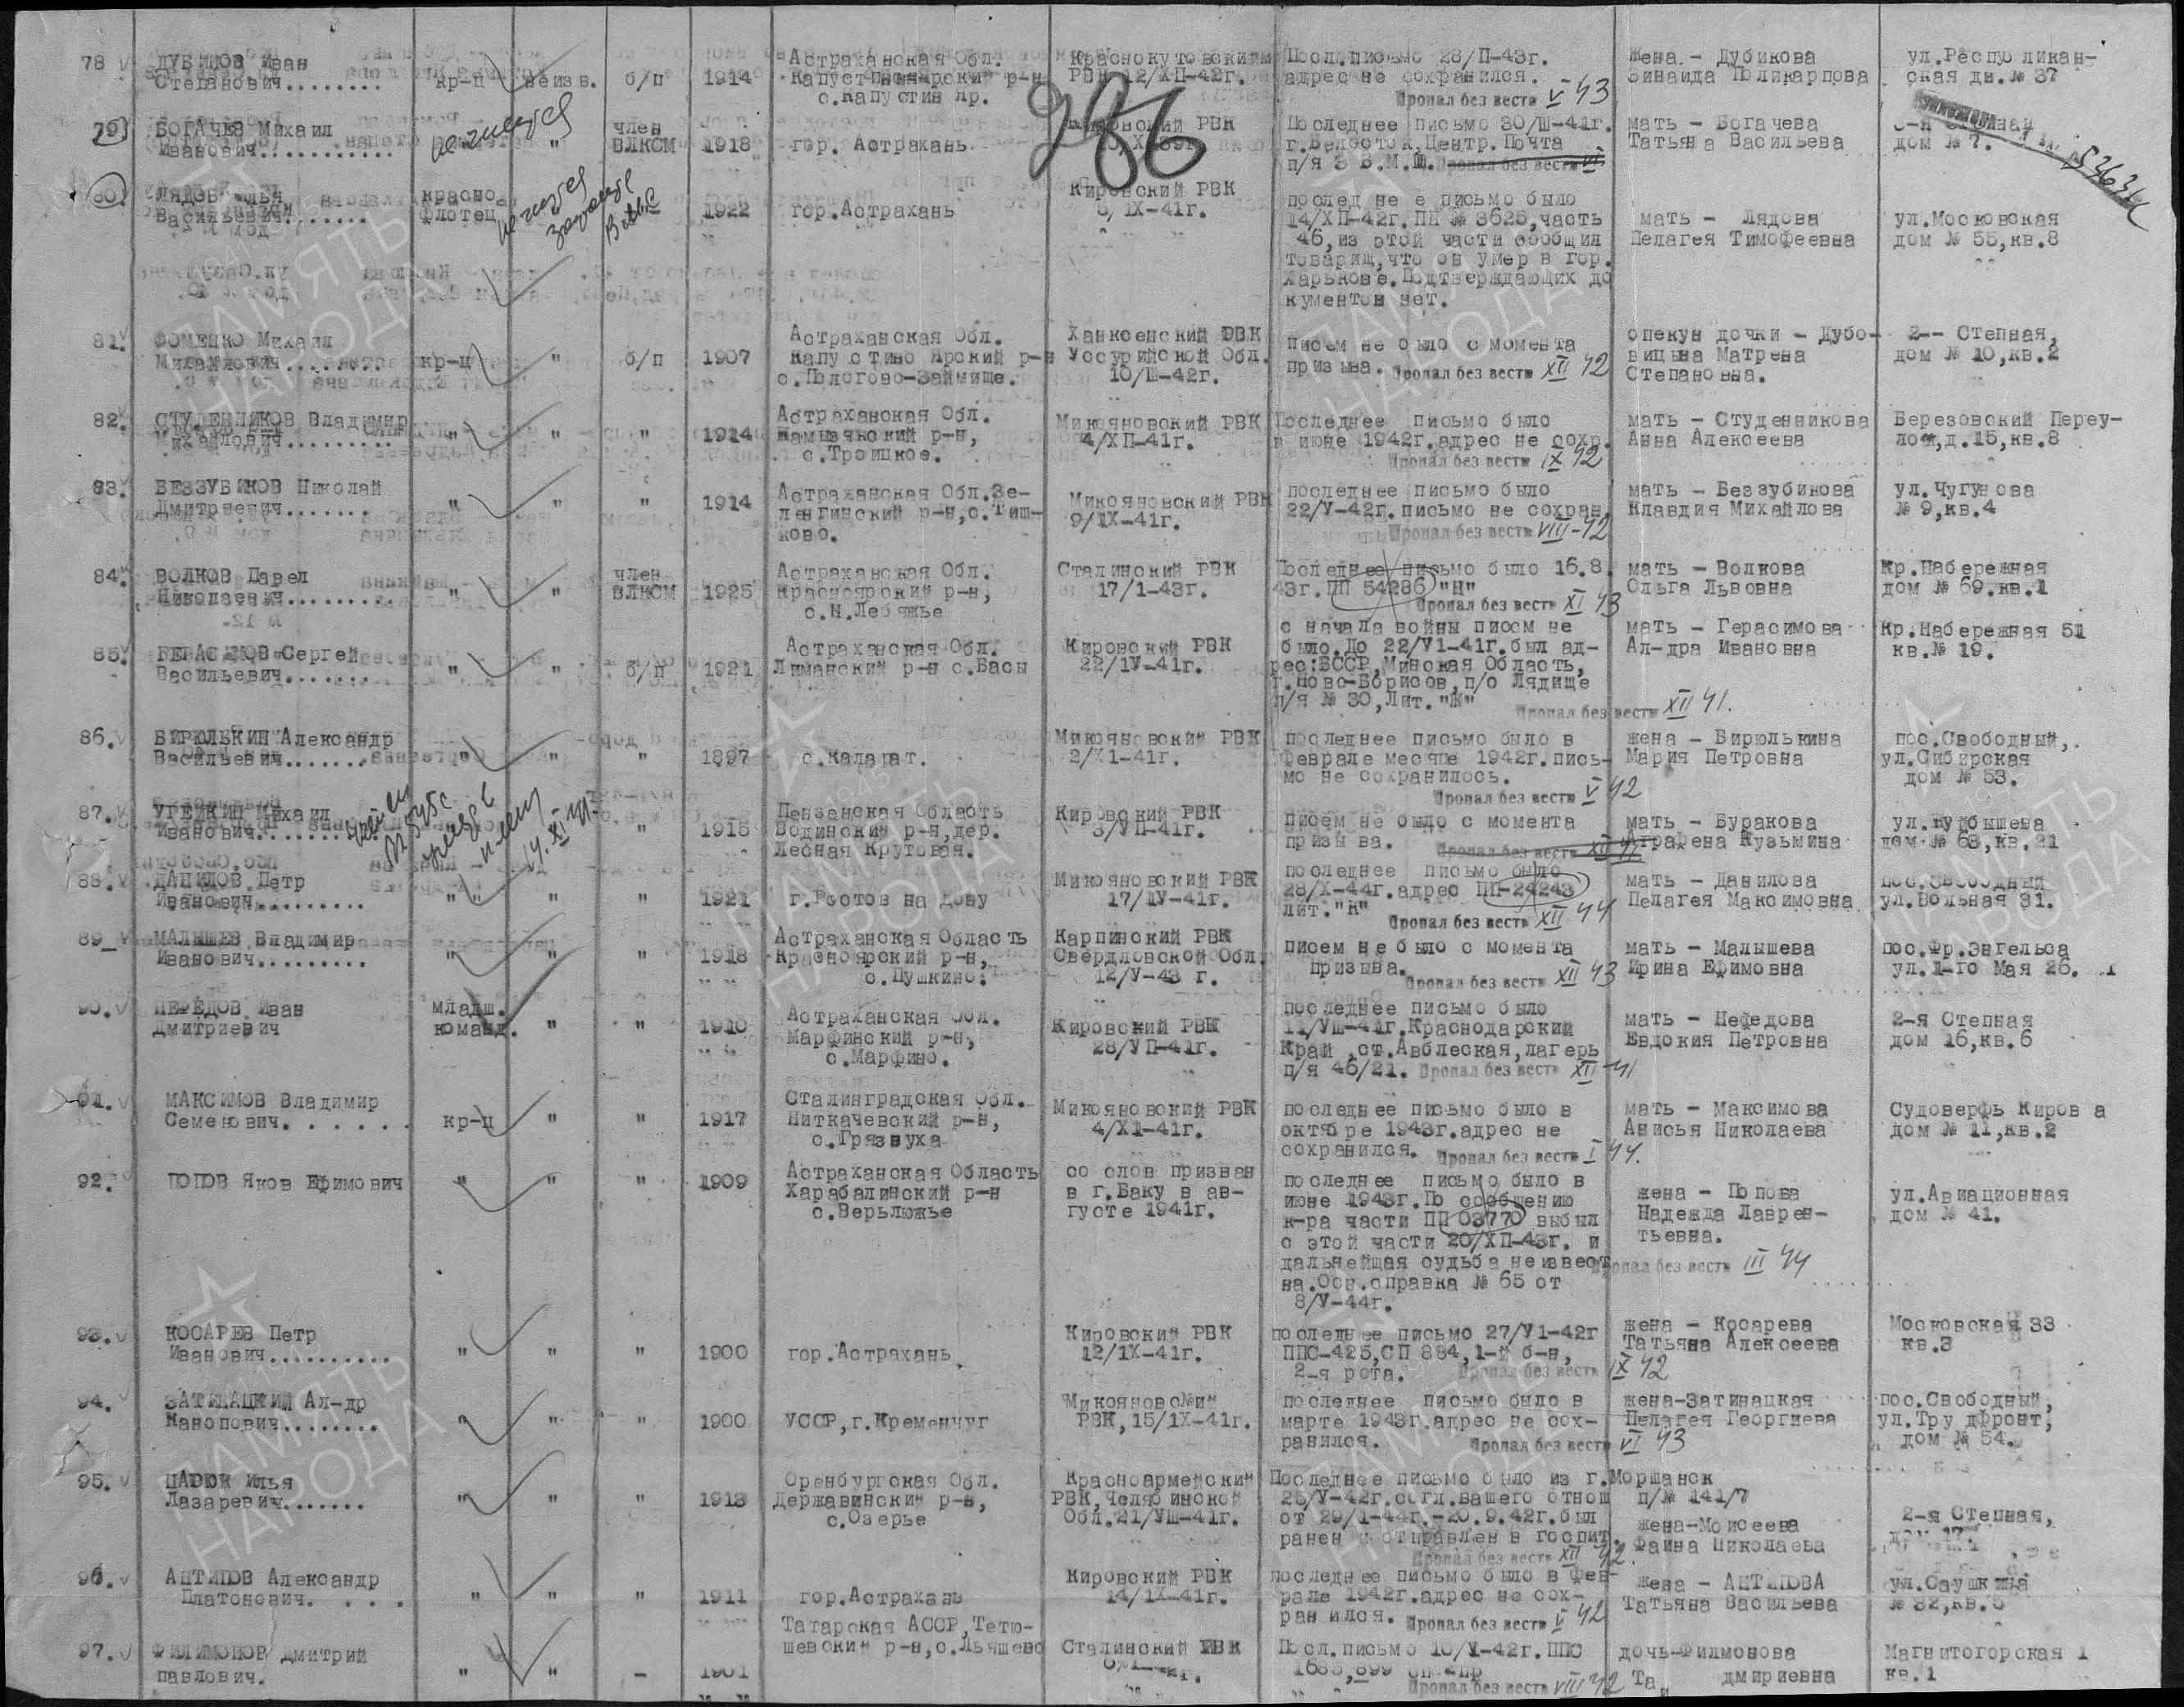 78 ДУБИКОВ Иван
Степанович........ кр-ц неизв. б/п 1914
Астраханская Обл.
Капустиноярский р-н
с.Капустин Яр.
Краснокутовским
РВК 12/ХП-42г.
Посл.письмо 28/П-43г.
адрес не сохранился.
Пропал без вести V 43
Жена - Дубикова
Зинаида Поликарпова
ул.Республикан-
ская дн.№ 37
286
79 БОГАЧЕВ Михаил
Иванович........... " член
ВЛКСМ 1918 гор. Астрахань
Кировский РВК
Последнее письмо 30/Ш-41г.
г.Белосток,Центр. Почта
п/я 3 В.М.Ш. Пропал без вести VI
мать - Богачева
Татьяна Васильева
дом № 7.
53634
80 ЛЯДОВ Илья
Васильевич........ красно
флотец 1922 гор.Астрахань
Кировский РВК
8/1Х-41г.
послед не е письмо было
14/ХП-42г. ПП № 3625,часть
46,из этой части сообщил
товарищ,что он умер в гор.
Харькове.Подтверждающих до
кументов нет.
мать - Лядова
Пелагея Тимофеевна
ул.Московская
дом № 55,кв.8
81. ФОМЕНКО Михаил
Михайлович........ кр-ц " б/п 1907
Астраханская Обл.
Капустино Ярский р-н
с.Пологово-Займище.
Ханкоенский РВК
Уссурийской Обл.
10/Ш-42г.
писем не было с момента
призыва. Пропал без вести XII 42
опекун дочки - Дубо-
вицына Матрена
Степановна.
2-- Степная,
дом № 10,кв.2
82. СТУДЕННИКОВ Владимир
Михайлович......... " " " 1924
Астраханская Обл.
Камызякский р-н,
с.Троицкое.
Микояновский РВК
4/ХП-41г.
Последнее письмо было
в июне 1942г.адрес не сохр.
Пропал без вести IX 42
мать - Студенникова
Анна Алексеева
Березовский Переу-
лок,д.15,кв.8
83. БЕЗЗУБИКОВ Николай
Дмитриевич....... " " " 1914
Астраханская Обл.Зе-
ленгинский р-н,с.Тиш-
ково.
Микояновский РВК
9/1Х-41г.
последнее письмо было
22/У-42г.письмо не сохран.
Пропал без вести VIII-42
мать - Беззубикова
Клавдия Михайлова
ул.Чугунова
№ 9,кв.4
84. ВОЛКОВ Павел
Николаевич........ " " член
ВЛКСМ 1925
Астраханская Обл.
Красноярский р-н,
с.Н.Лебяжье
Сталинский РВК
17/1-43г.
Последнее письмо было 16.8.
43г.ПП 54286 "Н"
Пропал без вести XI 43
мать - Волкова
Ольга Львовна
Кр.Набережная
дом № 69.кв.1
85. ГЕРАСИМОВ Сергей
Васильевич....... " " б/п 1921
Астраханская Обл.
Лиманский р-н с.Басы
Кировский РВК
22/1У-41г.
с начала войны писем не
было.До 22/У1-41г.был ад-
рес:БССР,Минская Область,
г.Ново-Борисов,п/о Лядище
п/я № 30,Лит."Ж"
Пропал без вести XII 41.
мать - Герасимова
Ал-дра Ивановна
Кр.Набережная 51
кв.№ 19.
86. БИРЮЛЬКИН Александр
Васильевич....... " " " 1897 с.Каларат.
Микояновский РВК
2/Х1-41г.
последнее письмо было в
Феврале месяце 1942г.пись-
мо не сохранилось.
Пропал без вести V 42
жена - Бирюлькина
Мария Петровна
пос.Свободный,.
ул.Сибирская
дом № 53.
87. УГЕЙКИН Михаил
Иванович....... " 1915
Пензенская Область
Бодинский р-н,дер.
Лесная Крутовая.
Кировский РВК
3/УП-41г.
писем не было с момента
призы ва. Пропал без вести XII
мать - Буракова
Аграфена Кузьмина
ул.Куйбышева
дом № 63,кв.21
88. ДАНИЛОВ Петр
Иванович.......... " " " " 1921 г.Ростов на Дону
Микояновский РВК
17/1У-41г.
последнее письмо было
28/Х-44г.адрес ПП-24243
лит."К"
Пропал без вести XII 44
мать - Данилова
Пелагея Максимовна
пос.Свободный
ул.Вольная 31.
89 МАЛЫШЕВ Владимир
Иванович......... " " " 1918
Астраханская Область
Красноярский р-н,
с.Пушкино.
Карпинский РВК
Свердловской Обл.
12/У-43 г.
писем не было с момента
призыва.
Пропал без вести XII 43
мать - Малышева
Ирина Ефимовна
пос.Фр.Энгельса
ул.1-го Мая 26.
90. НЕФЕДОВ Иван
Дмитриевич младш.
команд. " " 1910
Астраханская Обл.
Марфинский р-н,
с.Марфино.
Кировский РВК
28/УП-41г.
последнее письмо было
11/УШ-41г.Краснодарский
Край ,ст.Авблеская,лагерь
п/я 46/21. Пропал без вести XII-41
мать - Нефедова
Евдокия Петровна
2-я Степная
дом 16,кв.6
91. МАКСИМОВ Владимир
Семенович. . . . . . кр-ц " " 1917
Сталинградская Обл.
Ниткачевский р-н,
с.Грязнуха
Микояновский РВК
4/Х1-41г.
последнее письмо было в
октябре 1943г.адрес не
сохранился. Пропал без вести I 44.
мать - Максимова
Анисья Николаева
Судоверфь Киров а
дом № 11,кв.2
92. ПОПОВ Яков Ефимович " " " 1909
Астраханская Область
Харабалинский р-н
с.Верьлюжье
со слов призван
в г.Баку в ав-
густе 1941г.
последнее письмо было в
июне 1943г.По сообщению
к-ра части ПП 03770 выбыл
с этой части 20/ХП-43г. и
дальнейщая судьба неизвест
на.Осн.справка № 65 от
8/У-44г.
Пропал без вести III 44
жена - Попова
Надежда Лаврен-
тьевна.
ул.Авиационная
дом № 41.
93. КОСАРЕВ Петр
Иванович.......... " " " 1900 гор.Астрахань
Кировский РВК
12/1Х-41г.
последнее письмо 27/У1-42г
ППС-425,СП 884,1-й б-н,
2-я рота. Пропал без вести IX 42
жена - Косарева
Татьяна Алексеева
Московская 33
кв.3
94. ЗАТИНАЦКИЙ Ал-др
Канопович......... " " " 1900 УССР,г.Кременчуг
РВК,15/1Х-41г.
последнее письмо было в
марте 1943г.адрес не сох-
ранился. Пропал без вести VI 43
жена-Затинацкая
Пелагея Георгиева
пос.Свободный,
ул.Тру дфронт,
дом № 54.
95. ЦАРЮК Илья
Лазаревич....... " " " 1913
Оренбургская Обл.
Державинский р-н,
с.Озерье
Красноармейский
РВК,Челябинской
Обл.21/УШ-41г.
Последнее письмо было из г.Моршанск
25/У-42г.согл.Вашего отнош п/№ 141/7
от 29/1-44г.-20.9.42г.был
ранен и отправлен в госпит.
Пропал без вести XII 42.
жена-Моисеева
Фаина Николаева
2-я Степная,
96. АНТИПОВ Александр
Платонович. . . . . " " " 1911 гор.Астрахань
Кировский РВК
14/1Х-41г.
последнее письмо было в Фев-
рале 1942г.адрес не сох-
ран ился. Пропал без вести V 42
жена - АНТИПОВА
Татьяна Васильева
ул.Саушкина
97. ФИЛИМОНОВ Дмитрий
павлович. " " - 1901
Татарская АССР,Тетю-
шевский р-н,с.Льяшево
Сталинский РВК
Посл.письмо 10/У-42г.ППС
Пропал без вести VIII 42
дочь-Филмонова
дмириевна
Магнитогорская 1
кв.1
ПАМЯТЬ
НАРОДА